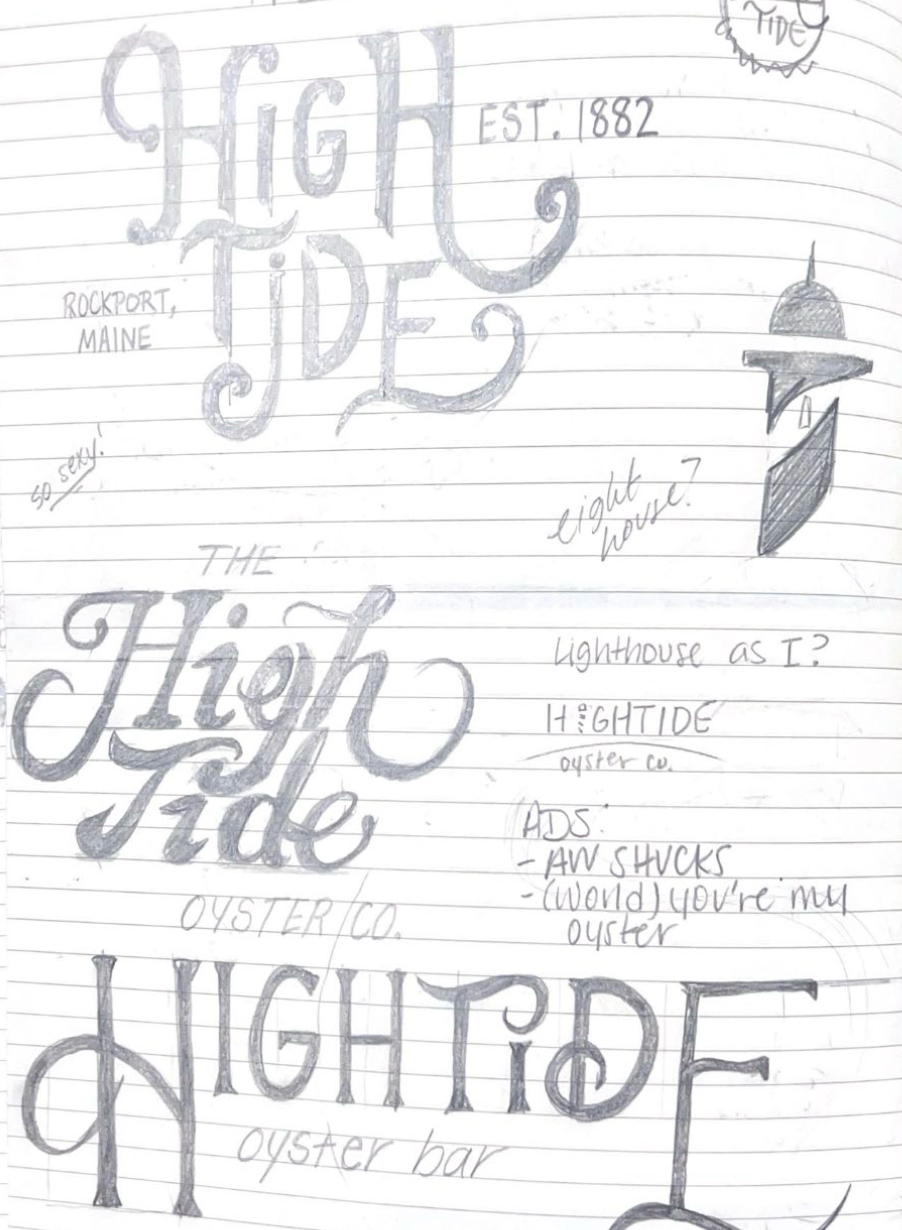 TIDE
HiGH
EST. 1882
TiDE
ROCKPORT,
MAINE
so sexy!
eight
house?
THE
High
Tide
Lighthouse as I?
HiGHTIDE
oyster co.
ADS:
- AW SHUCKS
- (World) you're my
oyster
OYSTER CO.
HIGHTiDE
oyster bar